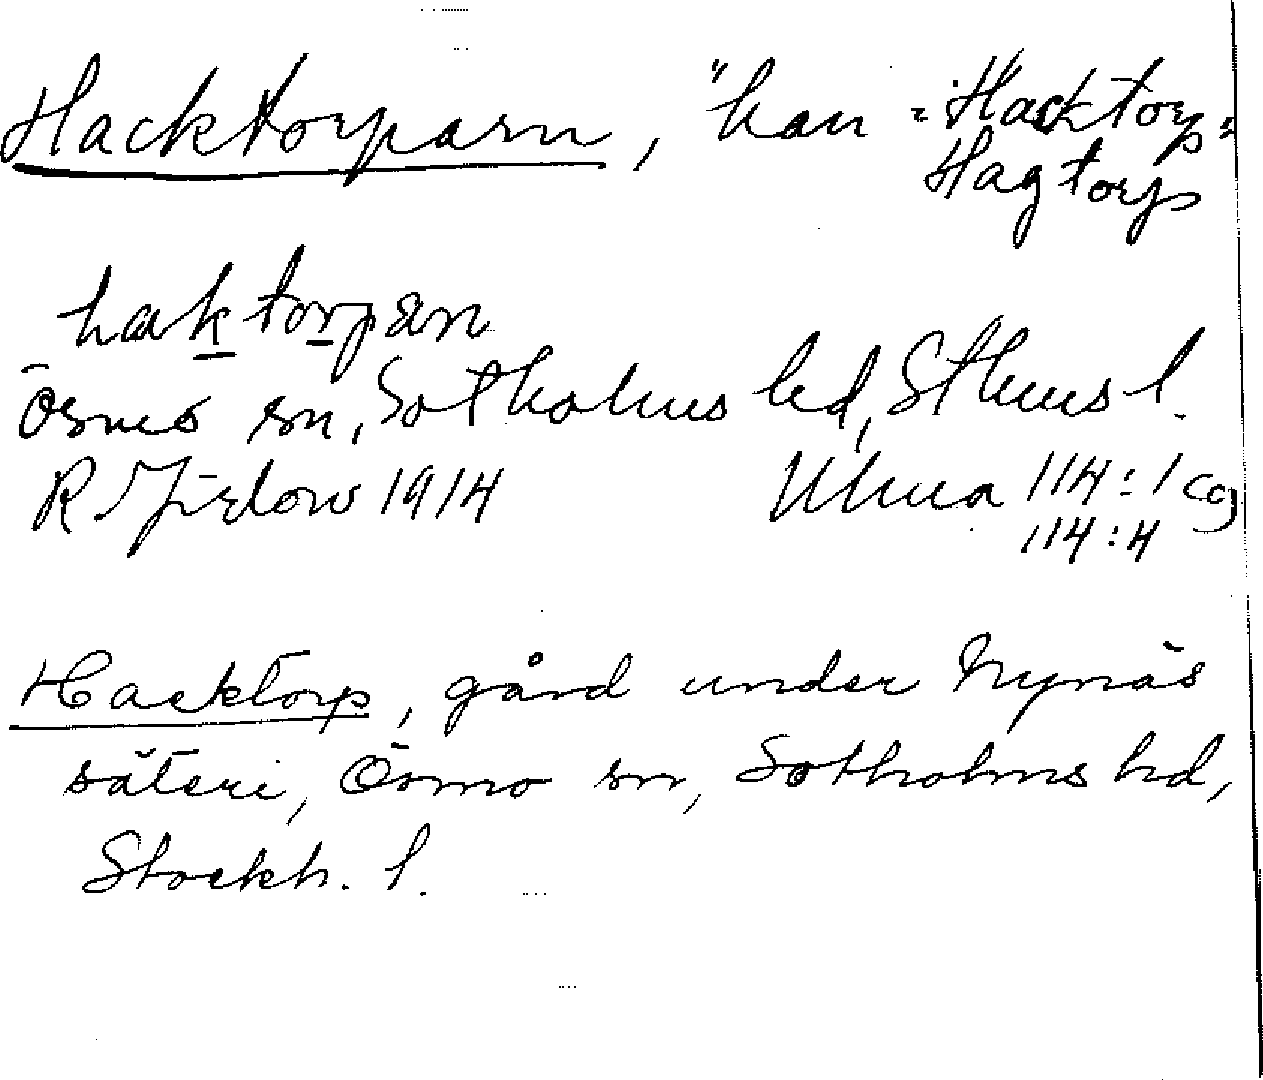 Hacktorparn, "han "Hacktorp"
Hagtorp
haktorpan
Ösmo sn, Sotholms hd, Sthms l.
R Jirlow 1914 Ulma 114:1 c9
114:4
Hacktorp, gård under Nynäs
säteri, Ösmo sn, Sotholms hd,
Stockh. l.